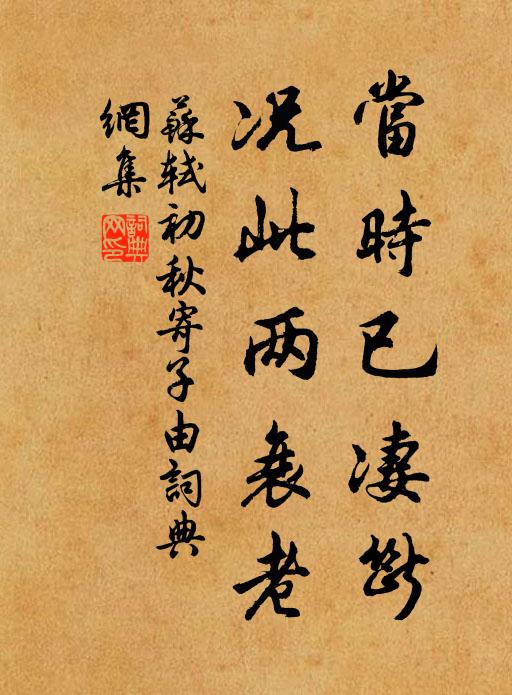 當時已淒斷
況此两衰老
蘇軾初秋寄子由詞典
網集
詞典
网印